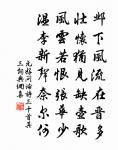 鄴下風流在晉多
壯懷猶見缺壺歌
風雲若恨張華少
溫李新聲奈爾何
元好問論詩三十首其
三詞典網